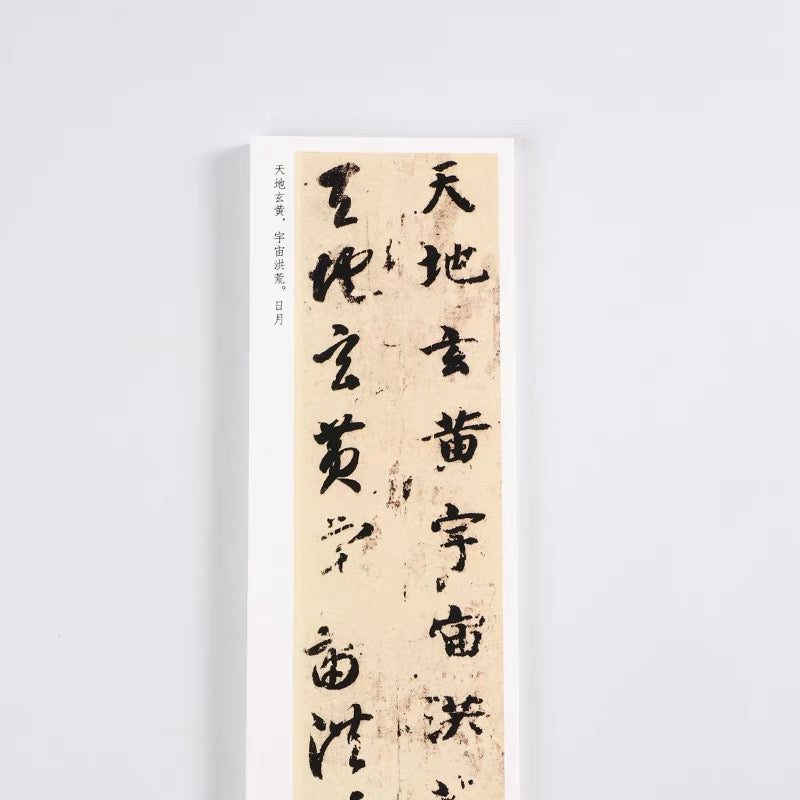 天地玄黄宇宙洪
天地玄黄宇宙洪
天地玄黄，宇宙洪荒。日月